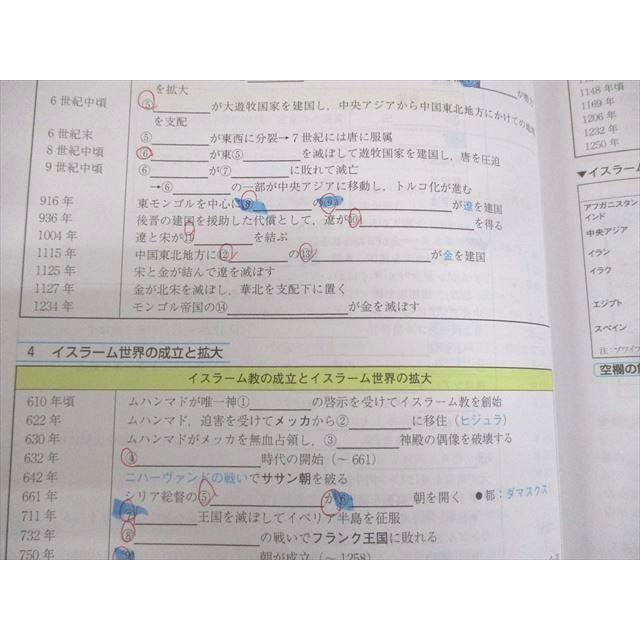 を拡大
6世紀中頃 ⑤ が大遊牧国家を建国し，中央アジアから中国東北地方にかけての
を支配
6世紀末 ⑤ が東西に分裂→7世紀には唐に服属
8世紀中頃 ⑥ が東⑤ を滅ぼして遊牧国家を建国し，唐を圧迫
9世紀中頃 ⑥ が⑦ に敗れて滅亡
→⑥ の一部が中央アジアに移動し，トルコ化が進む
916年 東モンゴルを中心に⑧ の⑨ が遼を建国
936年 後晋の建国を援助した代償として，遼が⑩ を得る
1004年 遼と宋が⑪ を結ぶ
1115年 中国東北地方に⑫ の⑬ が金を建国
1125年 宋と金が結んで遼を滅ぼす
1127年 金が北宋を滅ぼし，華北を支配下に置く
1234年 モンゴル帝国の⑭ が金を滅ぼす
4 イスラーム世界の成立と拡大
イスラーム教の成立とイスラーム世界の拡大
610年頃 ムハンマドが唯一神① の啓示を受けてイスラーム教を創始
622年 ムハンマド，迫害を受けてメッカから② に移住（ヒジュラ）
630年 ムハンマドがメッカを無血占領し，③ 神殿の偶像を破壊する
632年 ④ 時代の開始（～661）
642年 ニハーヴァンドの戦いでササン朝を破る
661年 シリア総督の⑤ が⑥ 朝を開く ●都：ダマスクス
711年 ⑦ 王国を滅ぼしてイベリア半島を征服
732年 ⑧ の戦いでフランク王国に敗れる
750年 ⑨ 朝が成立（～1258）
1148年頃
1169年
1206年
1232年
1250年
▼イスラーム
アフガニスタン
インド
中央アジア
イラン
イラク
エジプト
スペイン
注：ブワイフ
空欄の